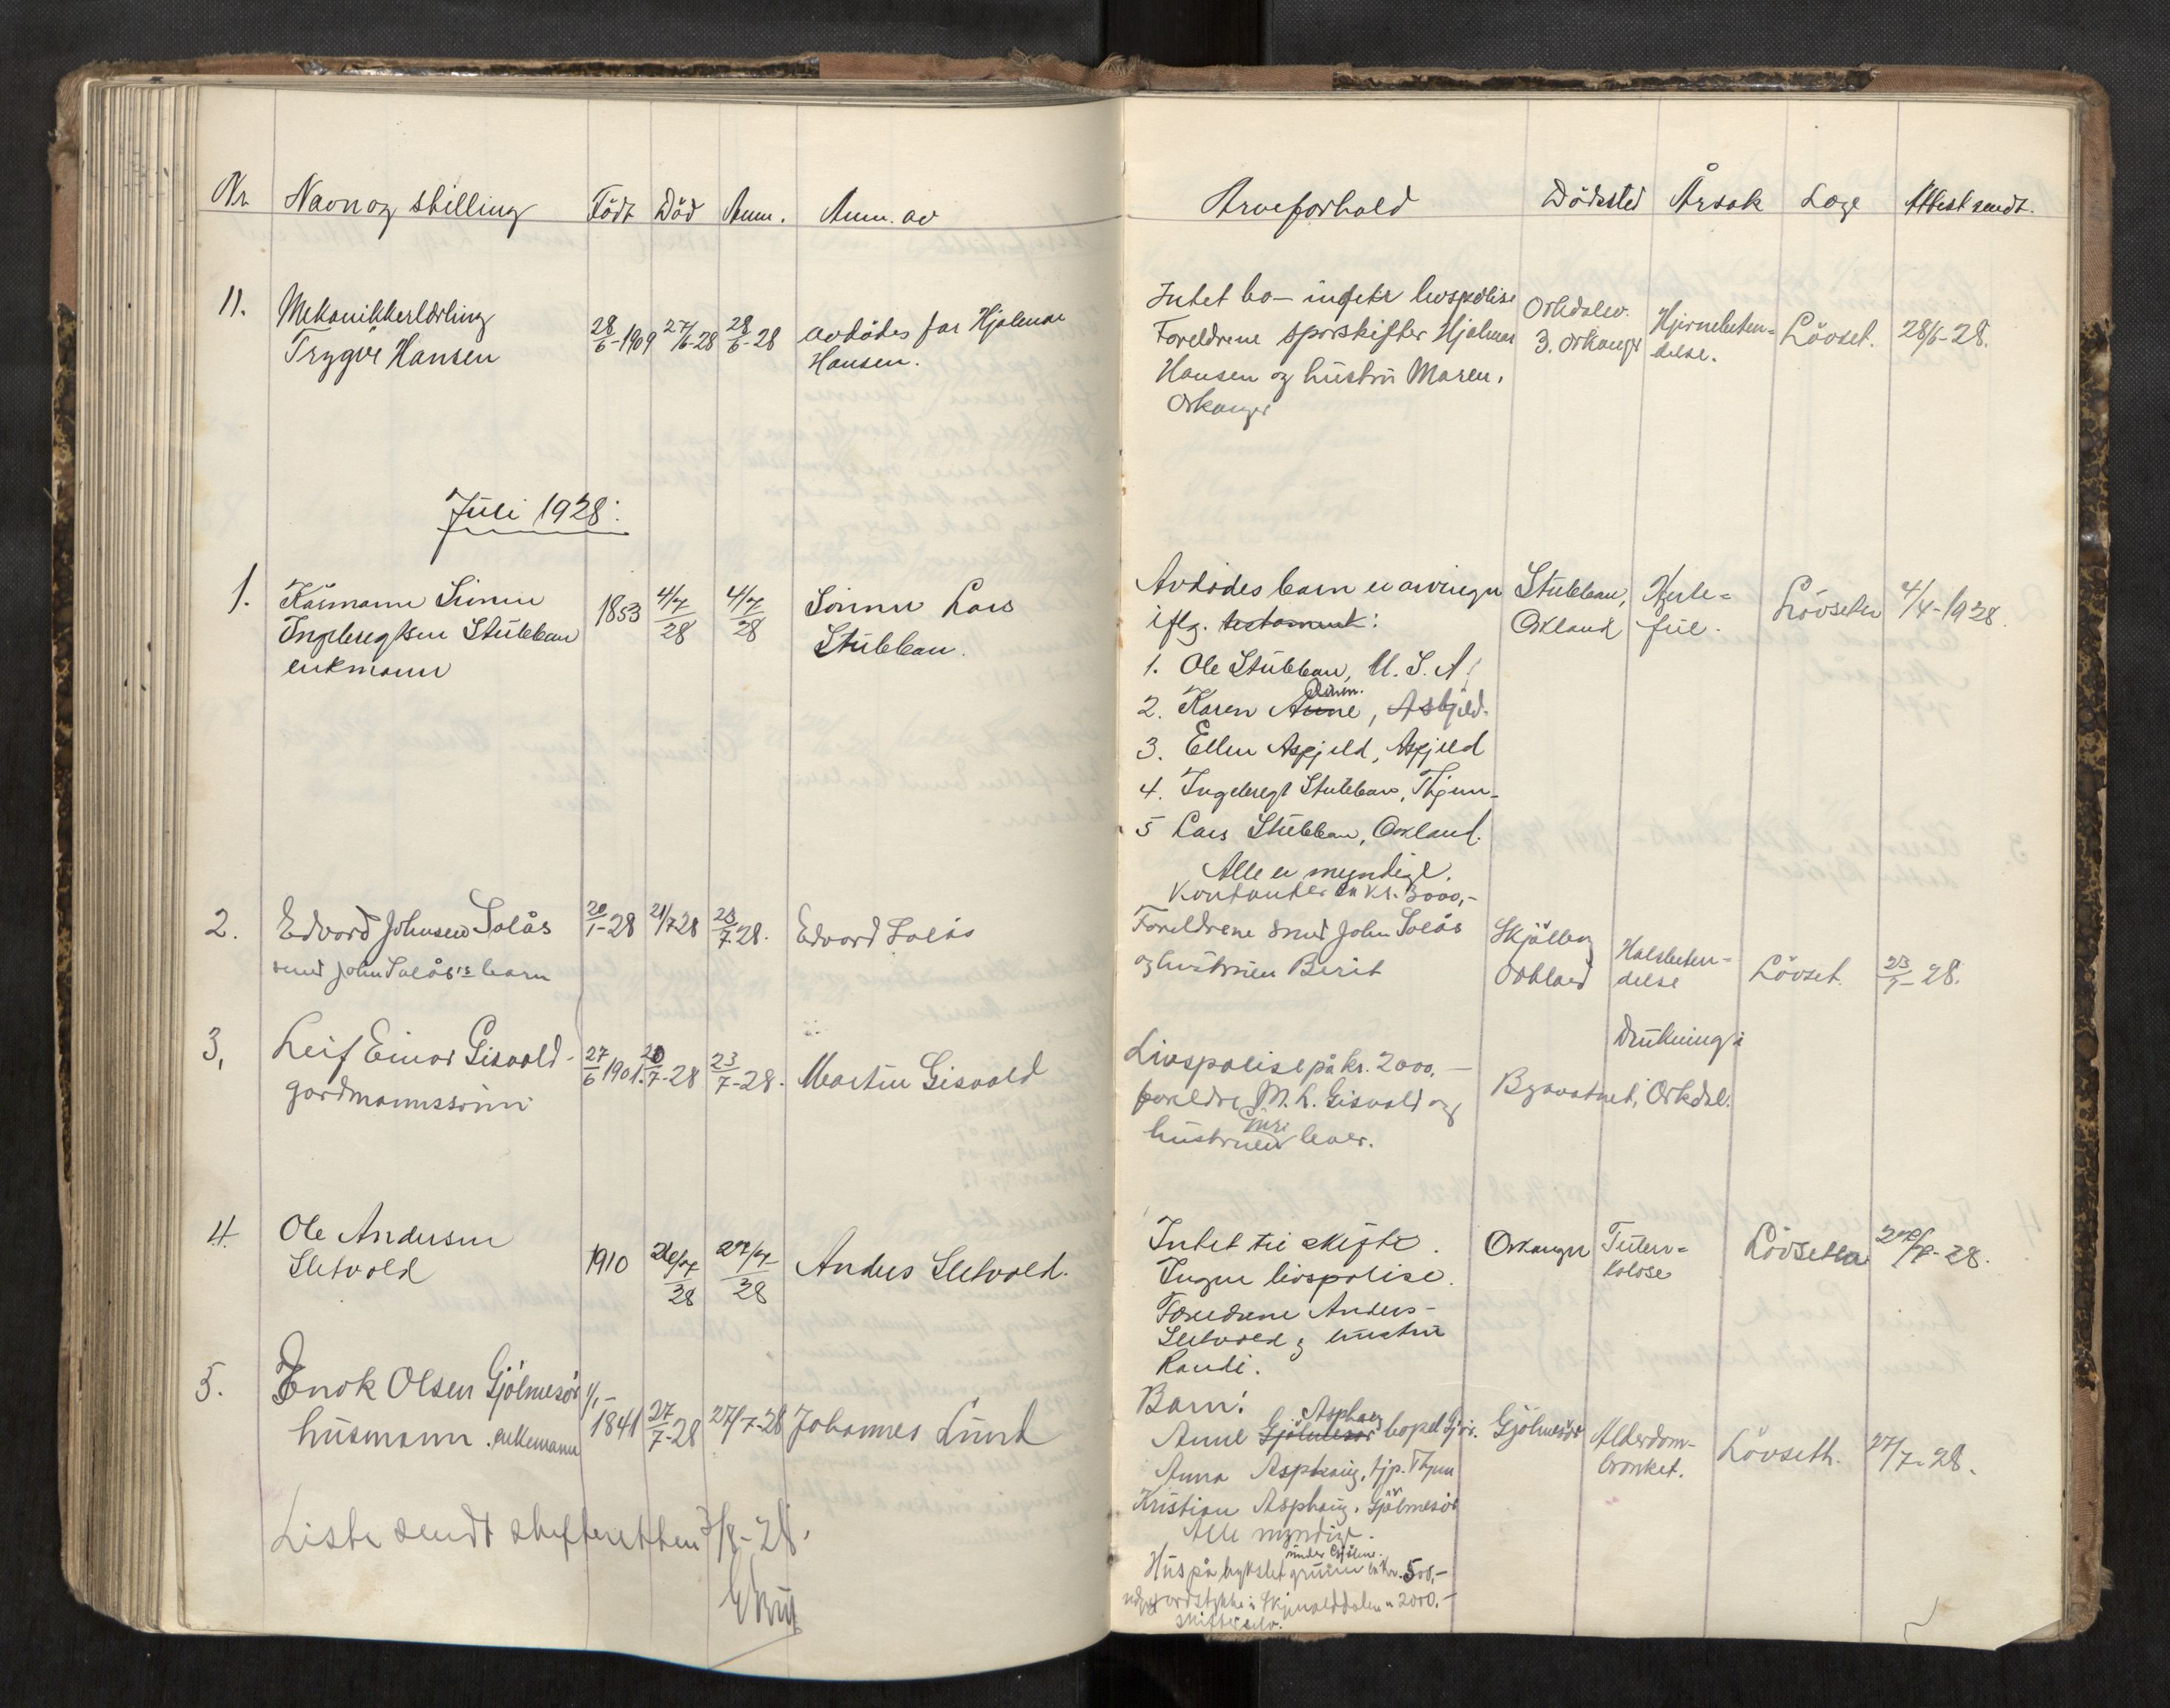 Nr. Navn og stilling Födt Död Anm. Anm. av Arveforhold Dödssted Årsak Læge Attest sendt.
11. Mekanikkerlærling
Trygve Hansen
28/6-1909 27/6-28 28/6-28 avdödes far Hjalmar
Hansen.
Intet bo - ingen livspolise
Foreldrene sporskifter Hjalmar
Hansen og hustru Maren,
Orkanger
Orkdalsv.
3. Orkanger
Hjernebeten-
delse.
Lövset. 28/6-28.
Juli 1928:
1. Kårmann Simen
Ingebregtsen Stubban
enkmann
1853 4/7 28 4/7 28 Sönnen Lars
Stubban.
Avdödes barn er arvinger
iflg. testament:
1. Ole Stubban, U.S.A.
2. Karen Anne, Asbjeld.
3. Ellen Aspjeld, Aspjeld
4. Ingebregt Stubban, Thjem-
5 Lars Stubban, Orkland.
Alle er myndige.
Kontanter ca kr. 3000,-
Stubban,
Orkland
Hjerte-
feil.
Lövseth 4/7-1928.
2. Edvard Johnsen Solås
smed John Solås's barn
20/1-28 21/7 28 23/7-28. Edvard Solås
Foreldrene smed John Solås
og hustruen Berit
Skjölberg
Orkland
Halsbeten-
delse
Lövset. 23/7-28.
3, Leif Einar Gisvold-
gardmannssönn
27/6 1901. 20/7-28 23/7-28. Martin Gisvold
Livspolise på kr. 2000,-
foreldre M. L. Gisvold og
hustruen Guri lever.
Drukning i
Byavatnet, Orkdal.
4. Ole Andersen
Sletvold
1910 26/7 28 27/7 28 Anders Sletvold.
Intet til skifte.
Ingen livspolise.
Foreldrene Anders
Sletvold og hustru
Randi.
Orkanger Tuber-
kolose
Lövseth 27/7-28.
5. Enok Olsen Gjölmesör
husmann. enkemann
1/1-1841 27/7-28 27/7-28 Johannes Lund
Barn:
Anne Gjölmesör Asphaug bopel Gjör.
Anna Asphaug, tjp. Thjem
Kristian Asphaug, Gjölmesör
Alle myndige.
Hus på bykslet grunn under Gjölme. ca kr. 500,-
jordstykke i Skjenalddalen " 2000,-
skifter selv.
Gjölmesör Alderdom-
bronket.
Lövseth. 27/7-28.
Liste sendt skifteretten 3/8-28.